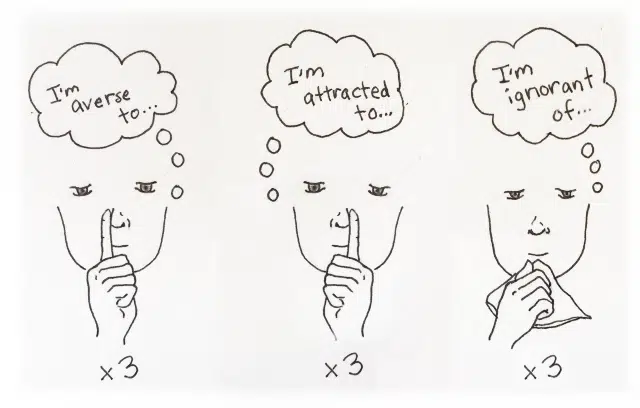 I'm
averse
to...
I'm
attracted
to...
I'm
ignorant
of...
x3
x3
x3